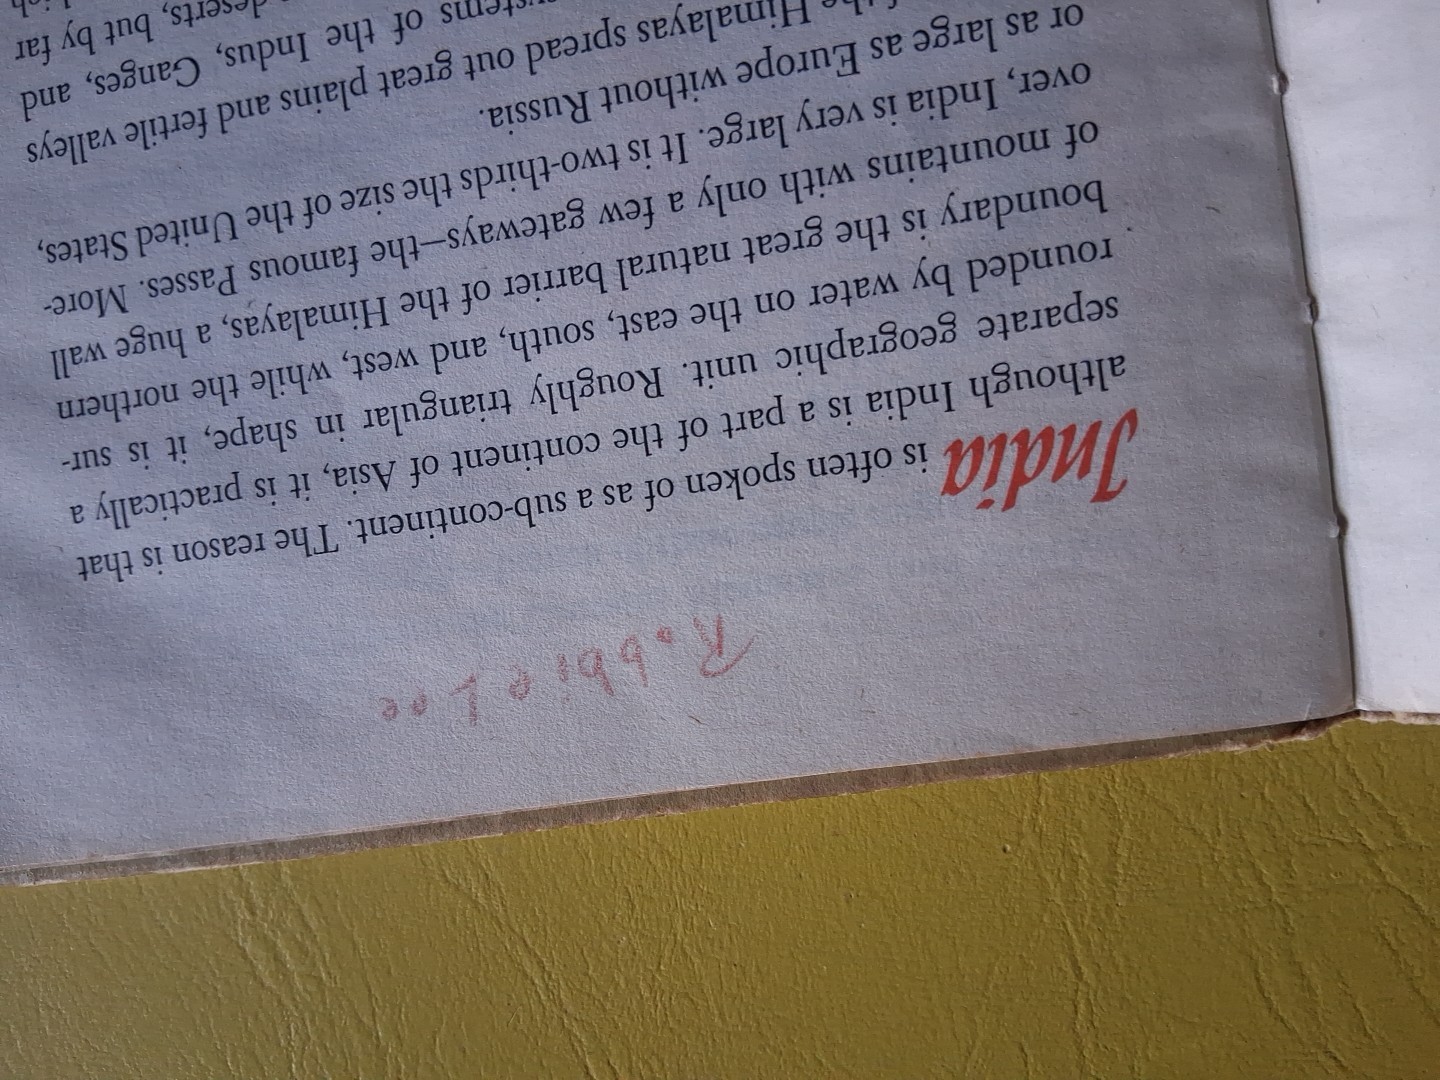 Robbie Lee
India is often spoken of as a sub-continent. The reason is that
although India is a part of the continent of Asia, it is practically a
separate geographic unit. Roughly triangular in shape, it is sur-
rounded by water on the east, south, and west, while the northern
boundary is the great natural barrier of the Himalayas, a huge wall
of mountains with only a few gateways—the famous Passes. More-
over, India is very large. It is two-thirds the size of the United States,
or as large as Europe without Russia.
Himalayas spread out great plains and fertile valleys
of the Indus, Ganges, and
deserts, but by far